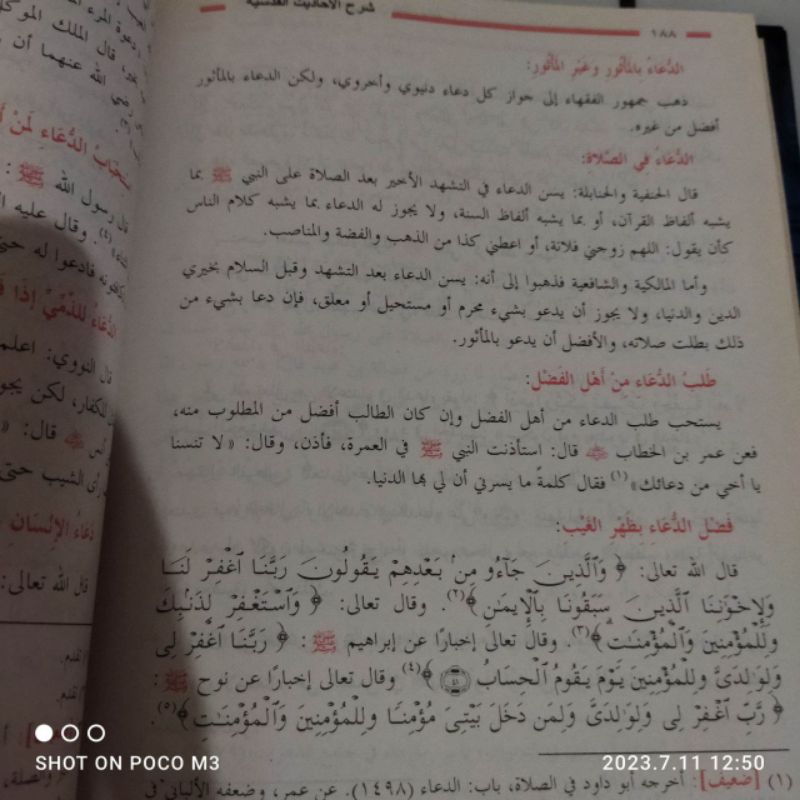 شرح الأحاديث القدسية
١٨٨
الدُّعَاءُ بِالمَأْثُورِ وَغَيْرِ المَأْثُورِ:
ذهب جمهور الفقهاء إلى جواز كل دعاء دنيوي وأخروي، ولكن الدعاء بالمأثور
أفضل من غيره.
الدُّعَاءُ فِي الصَّلَاةِ:
قال الحنفية والحنابلة: يسن الدعاء في التشهد الأخير بعد الصلاة على النبي ﷺ بما
يشبه ألفاظ القرآن، أو بما يشبه ألفاظ السنة، ولا يجوز له الدعاء بما يشبه كلام الناس
كأن يقول: اللهم زوجني فلانة، أو اعطني كذا من الذهب والفضة والمناصب.
وأما المالكية والشافعية فذهبوا إلى أنه: يسن الدعاء بعد التشهد وقبل السلام بخيري
الدين والدنيا، ولا يجوز أن يدعو بشيء محرم أو مستحيل أو معلق، فإن دعا بشيء من
ذلك بطلت صلاته، والأفضل أن يدعو بالمأثور.
طَلَبُ الدُّعَاءِ مِنْ أَهْلِ الفَضْلِ:
يستحب طلب الدعاء من أهل الفضل وإن كان الطالب أفضل من المطلوب منه،
فعن عمر بن الخطاب ﷺ قال: استأذنت النبي ﷺ في العمرة، فأذن، وقال: «لا تنسنا
يا أخي من دعائك»(١) فقال كلمةً ما يسرني أن لي بها الدنيا.
فَضْلُ الدُّعَاءِ بِظَهْرِ الغَيْبِ:
قال الله تعالى: ﴿ وَٱلَّذِينَ جَآءُو مِنۢ بَعْدِهِمْ يَقُولُونَ رَبَّنَا ٱغْفِرْ لَنَا
وَلِإِخْوَٰنِنَا ٱلَّذِينَ سَبَقُونَا بِٱلْإِيمَٰنِ ﴾(٢). وقال تعالى: ﴿ وَٱسْتَغْفِرْ لِذَنۢبِكَ
وَلِلْمُؤْمِنِينَ وَٱلْمُؤْمِنَٰتِ ﴾(٣). وقال تعالى إخبارًا عن إبراهيم ﷺ: ﴿ رَبَّنَا ٱغْفِرْ لِى
وَلِوَٰلِدَىَّ وَلِلْمُؤْمِنِينَ يَوْمَ يَقُومُ ٱلْحِسَابُ ٤١ ﴾(٤) وقال تعالى إخبارًا عن نوح ﷺ:
﴿ رَّبِّ ٱغْفِرْ لِى وَلِوَٰلِدَىَّ وَلِمَن دَخَلَ بَيْتِىَ مُؤْمِنًا وَلِلْمُؤْمِنِينَ وَٱلْمُؤْمِنَٰتِ ﴾(٥).
(١) [ضعيف]: أخرجه أبو داود في الصلاة، باب: الدعاء (١٤٩٨). عن عمر، وضعفه الألباني في
SHOT ON POCO M3
2023.7.11 12:50